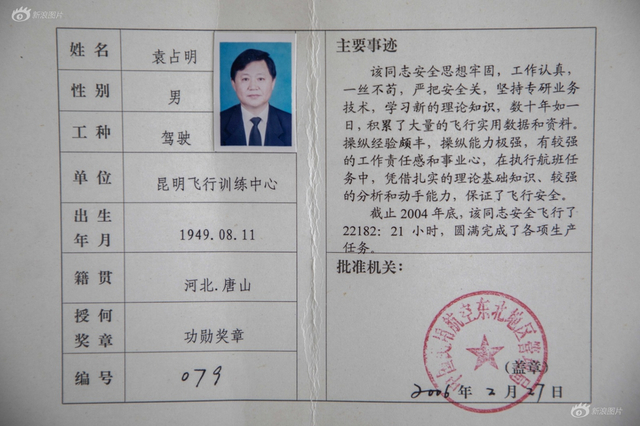 新浪图片
姓名 袁占明
性别 男
工种 驾驶
单位 昆明飞行训练中心
出生
年月 1949.08.11
籍贯 河北.唐山
授何
奖章 功勋奖章
编号 079
主要事迹
该同志安全思想牢固，工作认真，
一丝不苟，严把安全关，坚持专研业务
技术，学习新的理论知识，数十年如一
日，积累了大量的飞行实用数据和资料。
操纵经验颇丰，操纵能力极强，有较强
的工作责任感和事业心，在执行航班任
务中，凭借扎实的理论基础知识、较强
的分析和动手能力，保证了飞行安全。
截止2004年底，该同志安全飞行了
22182：21小时，圆满完成了各项生产
任务。
批准机关：
中国民用航空东北地区管理局
（盖章）
2006年2月27日
新浪图片